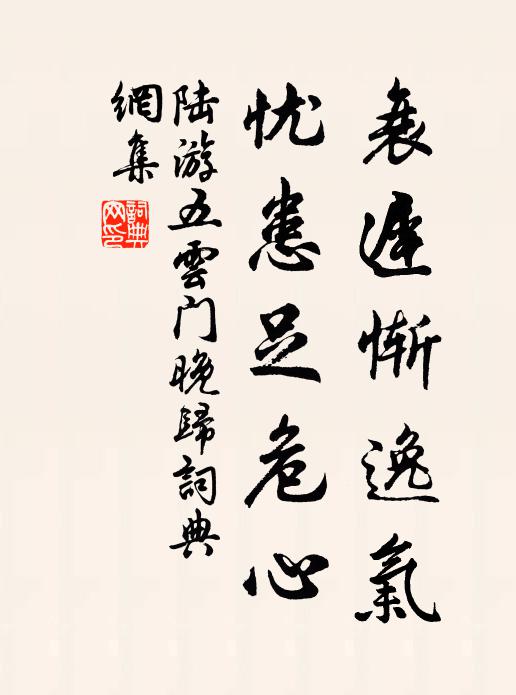 衰遲惭逸氣
忧患足危心
陆游五雲门晚歸詞典
網集
詞典网印